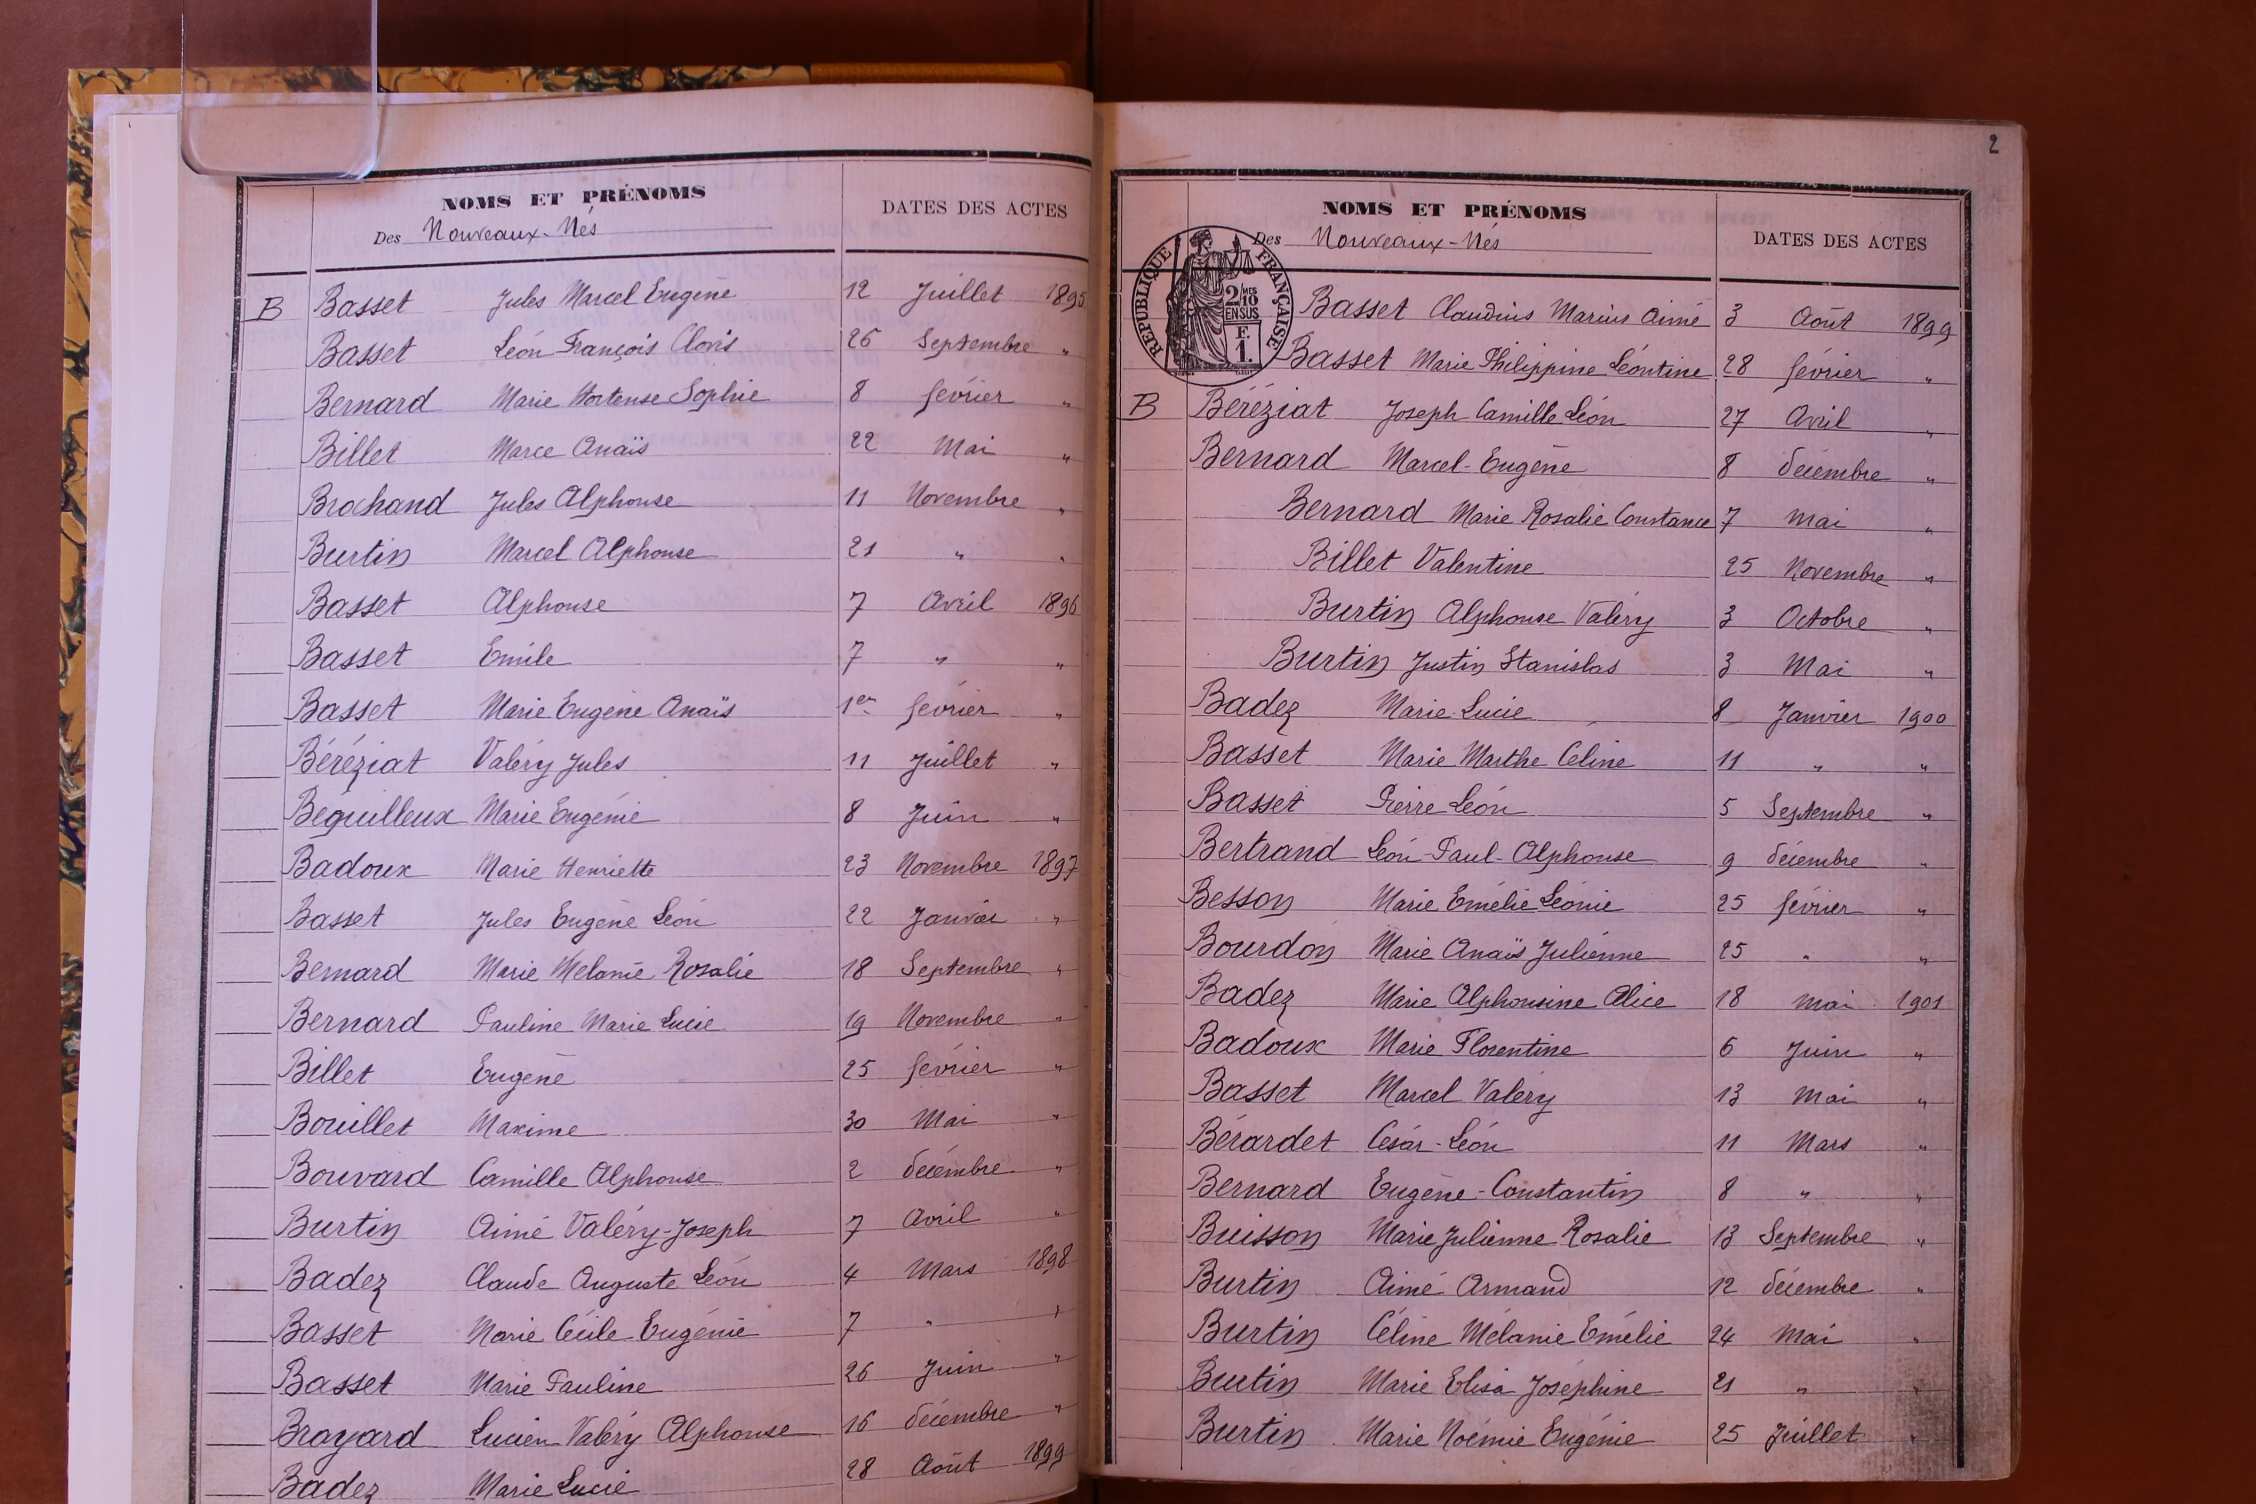 NOMS ET PRÉNOMS
DATES DES ACTES
Des Nouveaux-Nés
B Basset Jules Marcel Eugène 12 Juillet 1895
Basset Léon François Clovis 26 Septembre "
Bernard Marie Hortense Sophie 8 février "
Billet Marce Anaïs 22 Mai "
Brochand Jules Alphonse 11 Novembre "
Burtin Marcel Alphonse 21 " "
Basset Alphonse 7 Avril 1896
Basset Emile 7 " "
Basset Marie Eugène Anaïs 1er février "
Béréziat Valéry Jules 11 Juillet "
Beguilleux Marie Eugénie 8 Juin "
Badoux Marie Henriette 23 Novembre 1897
Basset Jules Eugène Léon 22 Janvier "
Bernard Marie Mélanie Rosalie 18 Septembre "
Bernard Pauline Marie Lucie 19 Novembre "
Billet Eugène 25 février "
Bouillet Maxime 30 Mai "
Bouvard Camille Alphonse 2 décembre "
Burtin Aimé Valéry-Joseph 7 Avril "
Badez Claude Auguste Léon 4 Mars 1898
Basset Marie Cécile Eugénie 7 " "
Basset Marie Pauline 26 Juin "
Broyard Lucien Valéry Alphonse 16 décembre "
Badez Marie Lucie 28 Août 1899
2
NOMS ET PRÉNOMS
DATES DES ACTES
Des Nouveaux-Nés
RÉPUBLIQUE FRANÇAISE
2 MES
10
EN SUS
F.
1.
Basset Claudius Marius Aimé 3 Août 1899
Basset Marie Philippine Léontine 28 février "
B Béréziat Joseph Camille Léon 27 Avril "
Bernard Marcel-Eugène 8 décembre "
Bernard Marie Rosalie Constance 7 Mai "
Billet Valentine 25 Novembre "
Burtin Alphonse Valéry 3 Octobre "
Burtin Justin Stanislas 3 Mai "
Badez Marie-Lucie 8 Janvier 1900
Basset Marie Marthe Céline 11 " "
Basset Pierre Léon 5 Septembre "
Bertrand Léon-Paul-Alphonse 9 décembre "
Besson Marie Emélie Léonie 25 février "
Bourdon Marie Anaïs Julienne 25 " "
Badez Marie Alphonsine Alice 18 Mai 1901
Badoux Marie Florentine 6 Juin "
Basset Marcel Valéry 13 Mai "
Bérardet César-Léon 11 Mars "
Bernard Eugène-Constantin 8 " "
Buisson Marie Julienne Rosalie 13 Septembre "
Burtin Aimé Armand 12 décembre "
Burtin Céline Mélanie Emélie 24 Mai "
Burtin Marie Elisa Joséphine 21 " "
Burtin Marie Noémie Eugénie 25 Juillet "